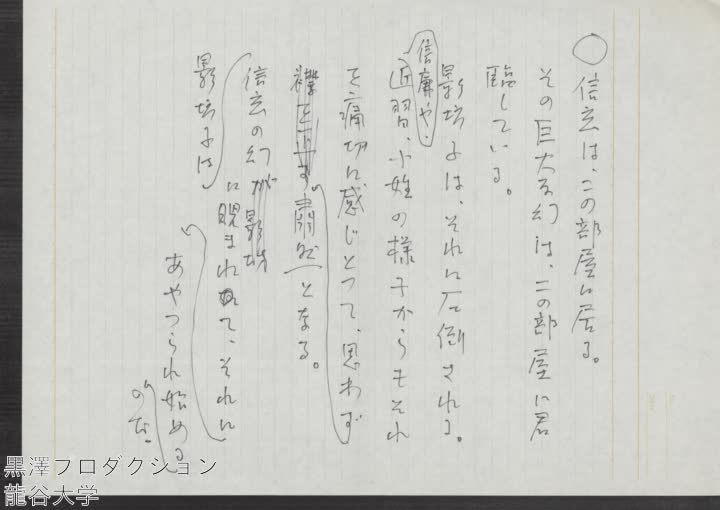 ○ 信玄は、この部屋に居る。
その巨大な幻は、この部屋に君
臨している。
影坊子は、それに圧倒される。
信廉や、
近習、小姓の様子からもそれ
を痛切に感じとって、思わず
襟を正す 粛然となる。
信玄の幻が影坊
に睨まれて、それに
影坊子は
あやつられ始める
のだ。
黒澤プロダクション
龍谷大学